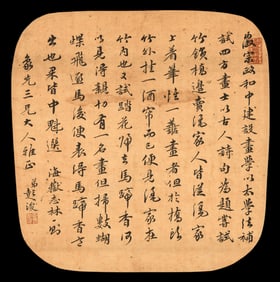 徽宗政和中建設畫學以太學法補
試四方畫士以古人詩句為題嘗試
竹鎖橋邊賣酒家人皆從酒家
上著筆惟一善畫者但於橋頭
竹外挂一酒帘而已便見酒家在
竹內也又試踏花歸去馬蹄香何
以見得親切有一名畫但掃數蝴
蝶飛逐馬後便表得馬蹄香
出也果皆中魁選 海嶽志林一則
三兄大人雅正 弟